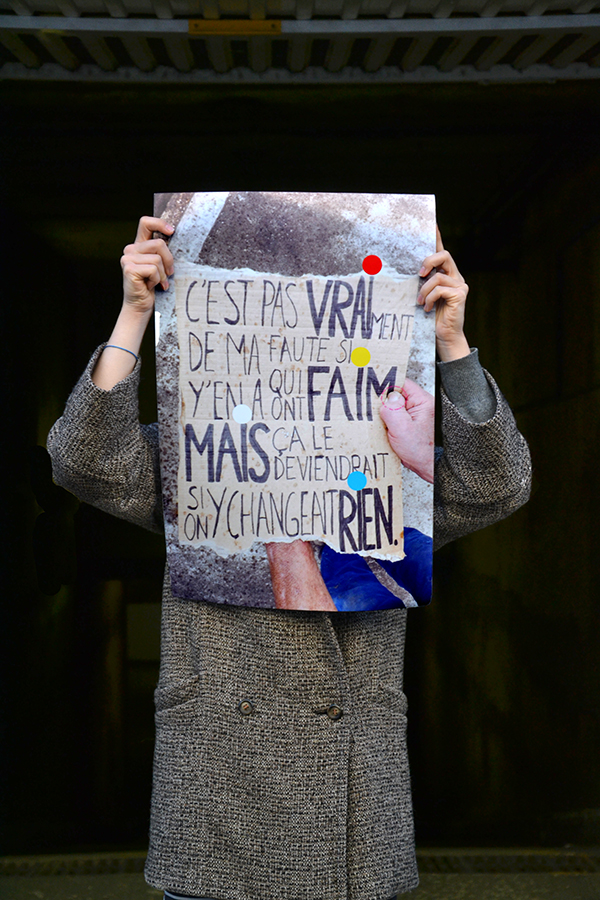 C'EST PAS VRAIMENT
DE MA FAUTE SI
Y'EN A QUI ONT FAIM
MAIS ÇA LE DEVIENDRAIT
SI ON Y CHANGEAIT RIEN.